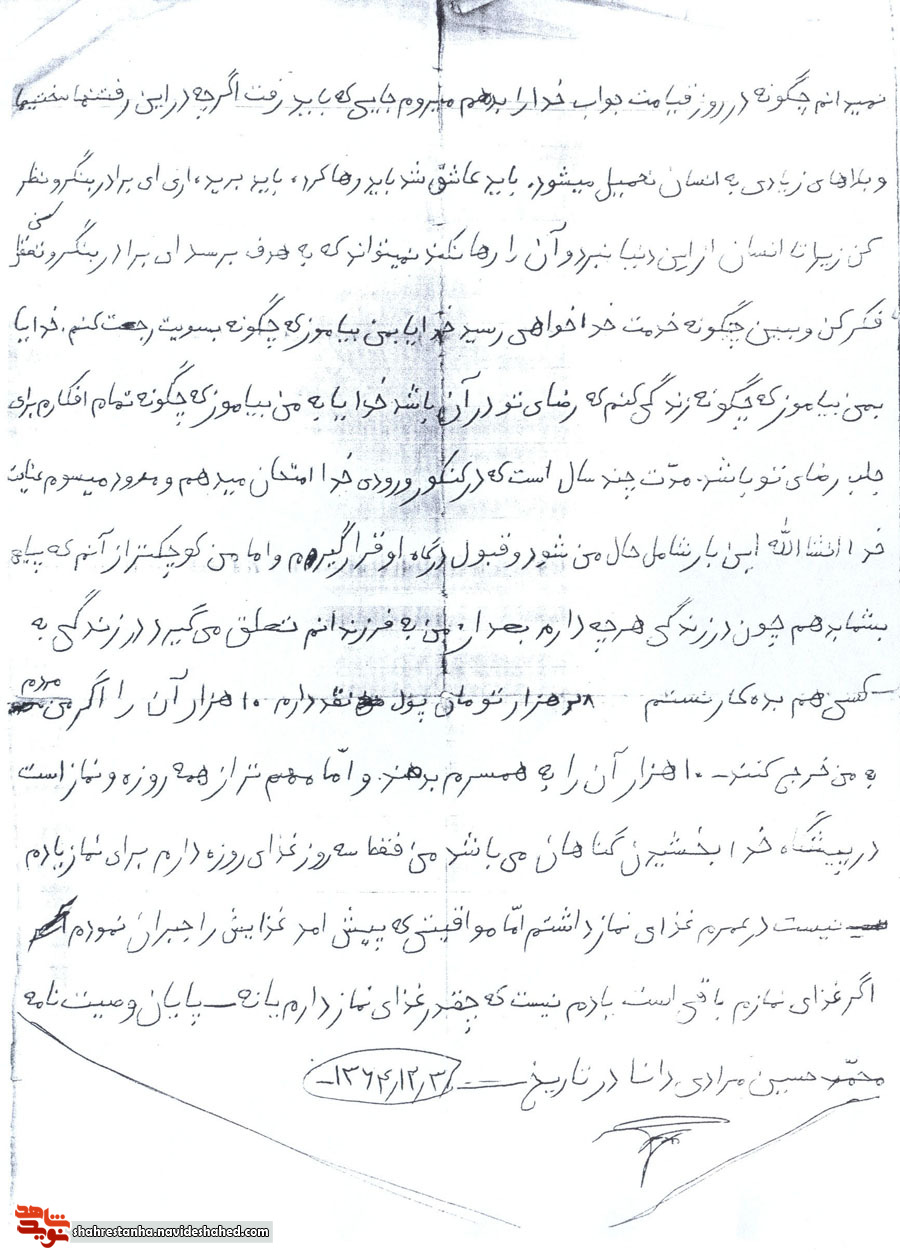 نمیدانم چگونه در روز قیامت جواب خدا را بدهم میروم جایی که باید رفت اگرچه در این رفتنها سختیها
و بلاهای زیادی به انسان تحمیل میشود. باید عاشق شد باید رها کرد، باید برید، اری ای برادر بنگر و نظر
کن زیرا تا انسان از این دنیا نبرد و آن را رها نکند نمیتواند که به هدف برسد ای برادر بنگر و تعقل کن
فکر کن و ببین چگونه خدمت خدا خواهی رسید خدایا بمن بیاموز که چگونه بسویت رجعت کنم. خدایا
بمن بیاموز که چگونه زندگی کنم که رضای تو در آن باشد خدایا به من بیاموز که چگونه تمام افکارم برای
جلب رضای تو باشد. مدّت چند سال است که در کنکور ورودی خدا امتحان میدهم و مردود میسوم عنایت
خدا انشاالله این بار شامل حال من شود و قبول درگاه او قرار گیرم و اما من کوچکتر از آنم که پیام
بشما بدهم چون در زندگی هرچه دارم بعد از من به فرزندانم تعلق می‌گیرد در زندگی به
کسی هم بده کار نستم ۲۸ هزار تومان پول نقد دارم ۱۰ هزار آن را اگر مردم
به من خرجی کنند - ۱۰ هزار آن را به همسرم بدهند. و امّا مهم تر از همه روزه و نماز است
در پیشگاه خدا بخشیدن گناهان می باشد من فقط سه روز غذای روزه دارم برای نماز یادم
نیست در عمرم غذای نماز داشتم امّا مواقیتی که پیش امد غزایش را جبران نمودم
اگر غزای نمازم باقی است یادم نیست که چقدر غزای نماز دارم یا نه - پایان وصیت نامه
محمّد حسین مرادی دانا در تاریخ ـــ ۱۳۶۴/۱۲/۳
نوید شاهد
shahrestanha.navideshahed.com